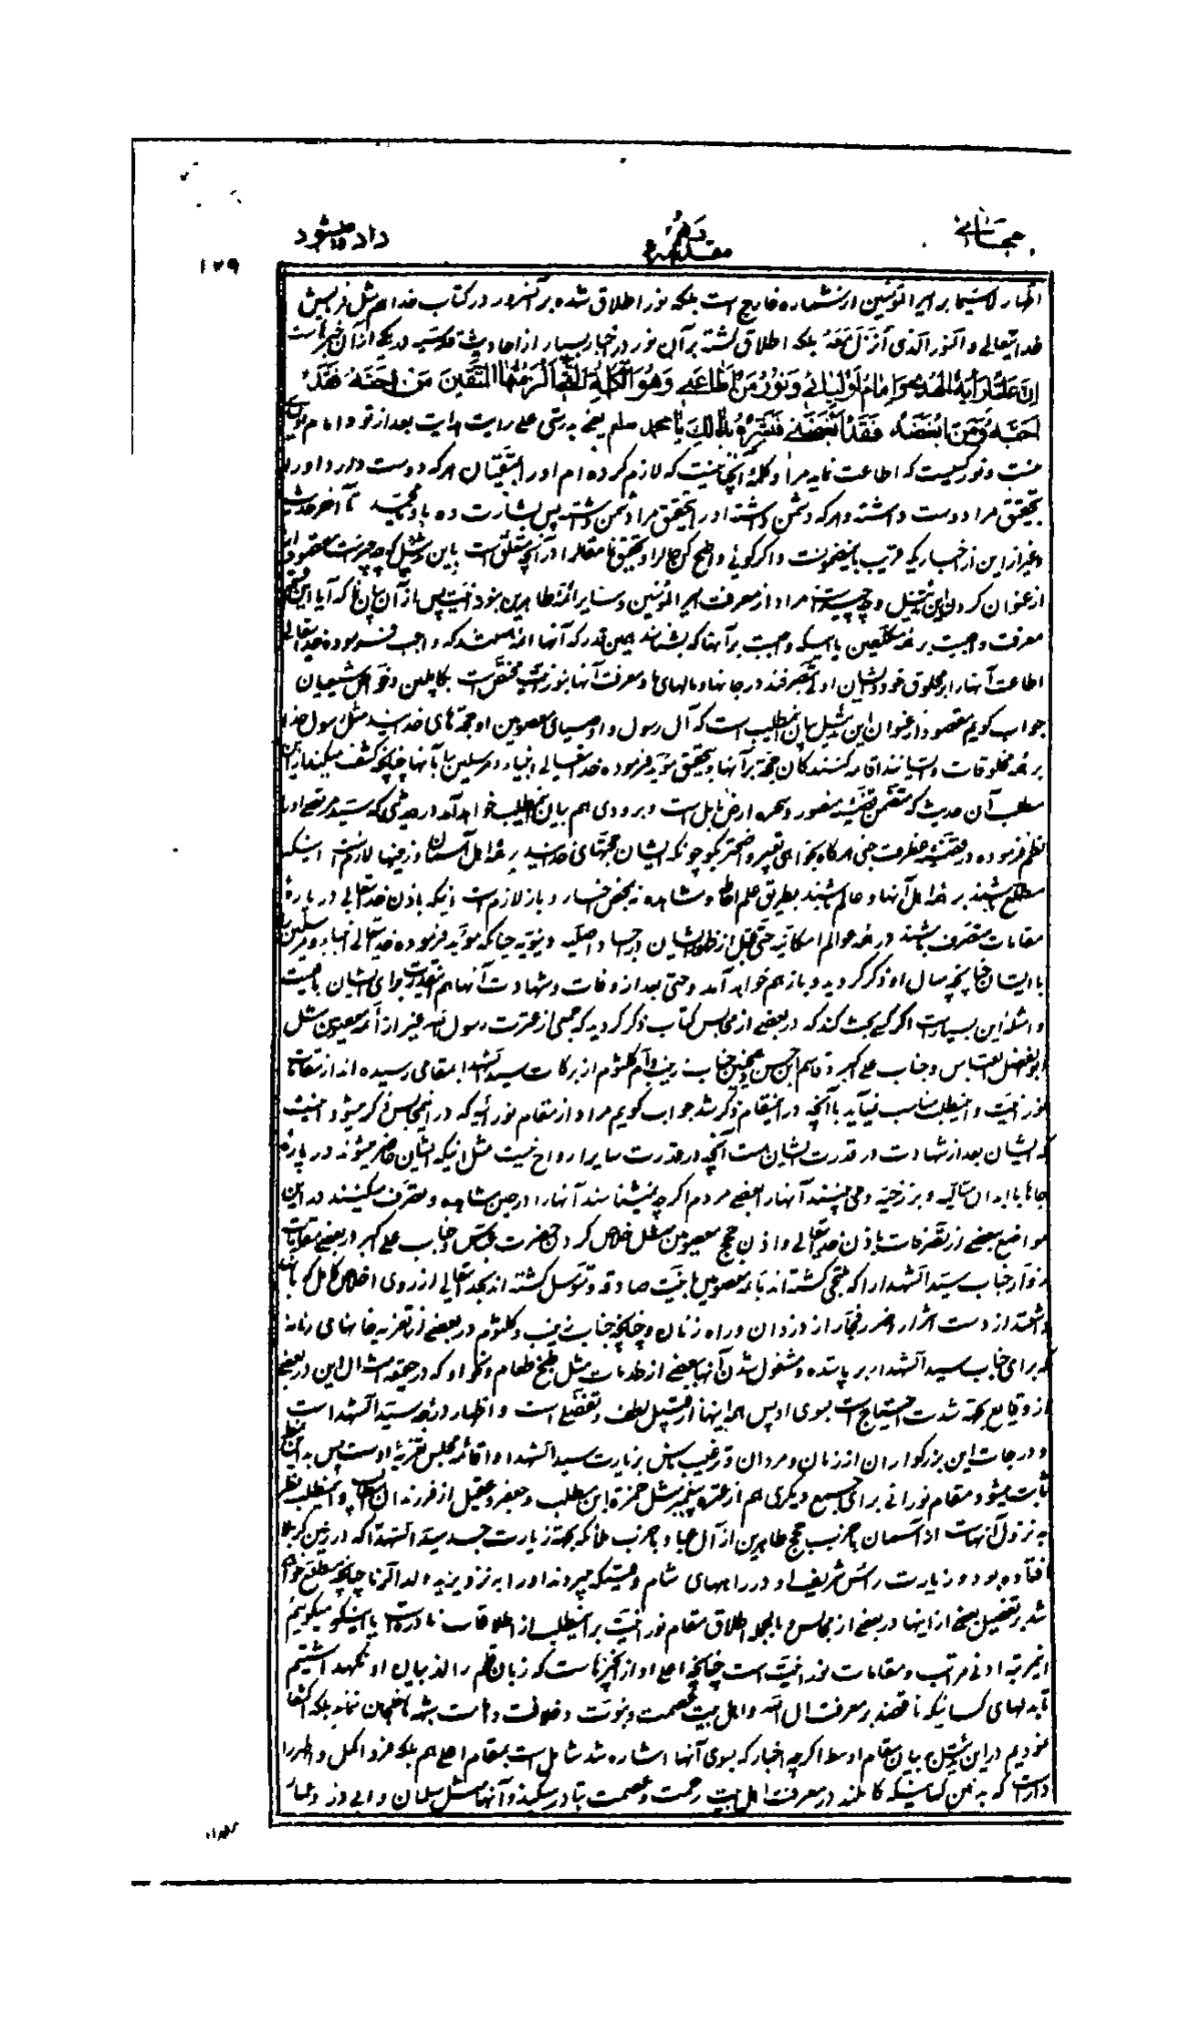 مقدمه
۱۲۹
اطهار لا سیما بر امیر المؤمنین از شماره خارج است بلکه نور اطلاق شده بر آنسرور در کتاب خدا هم مثل فرمایش
خدایتعالی و النور الذی انزل معه بلکه اطلاق گشته بر آن نور در اخبار بسیار از احادیث قدسیه در یکی از آن
اِنَّ عَلِيًّا رايَةُ الْهُدى وَ اِمامُ اَوْلِيائى وَ نُورُ مَنْ اَطاعَنى وَ هُوَ الْكَلِمَةُ الَّتى اَلْزَمْتُهَا الْمُتَّقينَ مَنْ اَحَبَّهُ فَقَدْ
اَحَبَّنى وَ مَنْ اَبْغَضَهُ فَقَدْ اَبْغَضَنى فَبَشِّرْهُ بِذلِكَ یا محمد صلعم یعنی بدرستی علی رایت هدایت بعد از تو و امام
منست و نور کسیست که اطاعت نماید مرا و کلمه آنچنانیست که لازم کرده‌ام او را بمتقیان هر که دوست دارد او را
بتحقیق مرا دوست داشته و هر که دشمن داشته او را بتحقیق مرا دشمن داشته پس بشارت ده باو تا آخر حدیث
و غیر از این از اخباریکه قریب باینمضمونست و اگر گوئی
از عنوان کردن این و چیست مراد از معرفت امیر المؤمنین و سایر ائمه طاهرین بنورانیت پس از آن بیان نما که آیا این
معرفت واجبست بر همه مکلفین یا اینکه واجبست بر آنها که بشناسند همین قدر که آنها ائمه هستند که واجب فرموده خدایتعالی
اطاعت آنها را بر مخلوق خود و ایشان اولی بتصرفند در جانها و مالهای ما و معرفت آنها بنورانیت مختص است بکاملین و خواص شیعیان
جواب گویم مقصود از عنوان این بیان اینمطلب است که آل رسول و اوصیای معصومین او حجتهای خدایند مثل رسول خدا
بر همه مخلوقات و ایشانند اقامه کنندگان حجة بر آنها و بتحقیق مؤید فرموده خدایتعالی انبیاء و مرسلین را بآنها چنانچه کشف میکند از این
مطلب آن حدیث که متضمن قضیه منصور و سحره ارض بابل است و بزودی هم بیان اینمطلب خواهد آمد در حدیثی که سید مرتضی او را
نظم فرموده در قضیه عظرفت جنی هرگاه بخواهی تعبیر واضحتر بگو چونکه ایشان حجتهای خدایند بر همه اهل آسمان و زمینها لازمست اینکه
مطلع باشند بر همه اهل آنها و عالم باشند بطریق علم احاطه و مشاهده نه بمحض اخبار و باز لازم است اینکه باذن خدایتعالی در پاره
مقامات متصرف باشند در همه عوالم امکانیه حتی قبل از ظهور ایشان در اجساد اصلیه دنیویه چنانکه مؤید فرموده خدایتعالی انبیاء و مرسلین
با ایشان چنانچه سال او ذکر گردید و باز هم خواهد آمد و حتی بعد از وفات و شهادت آنها هم برای ایشان
و امثله این بسیار است اگر کسی بحث کند که در بعضی از مجالس کتاب ذکر گردید که جمعی از عترت رسول الله غیر از ائمه معصومین مثل
ابو الفضل العباس و جناب علی اکبر و قاسم ابن حسن و همچنین جناب زینب و ام کلثوم از برکات سید الشهدا بمقامی رسیده‌اند از مقامات
نورانیت و اینمطلب مناسب نیاید با آنچه در اینمقام ذکر شد جواب گویم مراد از مقام نورانیه که در آن مجالس ذکر میشود اینست
که ایشان بعد از شهادت در قدرت ایشان هست آنچه در قدرت سایر ارواح نیست مثل اینکه ایشان حاضر میشوند در پاره
جاها با ابدان مثالیه و برزخیه و می‌بینند آنها را بعضی مردم اگر چه نمیشناسند آنها را در حین مشاهده و تصرف میکنند در این
مواضع بعضی از تصرفات باذن خدایتعالی و اذن حجج معصومین مثل خلاص کردن حضرت عباس و جناب علی اکبر در بعضی مقامات
زوار جناب سید الشهدا را که ملتجی گشته‌اند بائمه معصومین با نیت صادقه و متوسل گشته‌اند بخدایتعالی از روی اخلاص کامل که
داشتند از دست اشرار و فجار از دزدان و راه زنان و چنانچه جناب زینب و کلثوم در بعضی از تعزیه خانهای زنانه
که برای جناب سید الشهدا بر پا شده و مشغول شدن آنها ببعضی از خدمات مثل طبخ طعام و نحو او که در حقیقت امثال این در بعضی
از وقایع بجهة شدت احتیاج است بسوی او پس همه اینها از قبیل لطف و تفضلی است و اظهار درجه سید الشهدا است
و درجات این بزرگواران از زنان و مردان و ترغیب ناس بزیارت سید الشهدا و اقامه مجلس تعزیه اوست پس
ثابت میشود مقام نورانی برای جمع دیگری هم از عترة پیغمبر مثل حمزة ابن مطلب و جعفر و عقیل از فرزندان و اینمطلب نظر
به نزول آنهاست از آسمان با حزب حجج طاهرین از آل عبا و با حزب ملائکه بجهة زیارت جسد سید الشهدا که در زمین کربلا
افتاده بود و زیارت رأس شریف او در راههای شام وقتیکه میبردند او را به نزد یزید ولد الزنا چنانچه مطلع خواهی
شد بر تفصیل بعضی از اینها در بعضی از مجالس و بالجمله اطلاق مقام نورانیت بر اینمطلب از اطلاقات نادره است یا اینکه میگوئیم
اینمرتبه ادنی مراتب و مقامات نورانیت است چنانچه اعلی او از چیزهاست که زبان قلم را از بیان او نگهداشتیم
تا بدلهای کسانیکه ناقصند بر معرفت آل الله و اهل بیت عصمت و نبوت و خلافت و امامت شبهه خلجان ننماید بلکه اکتفا
نمودیم در این به بیان مقام اوسط اگر چه اخبار که بسوی آنها اشاره شد شامل است بمقام اعلی هم بلکه فرد اکمل و اظهر را
داراست که بذهن کسانیکه کاملند در معرفت اهل بیت رحمت و عصمت تبادر میکند و آنها مثل سلمان و ابی ذر و عمار